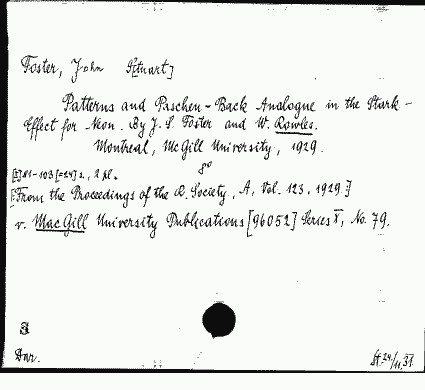 Foster, John S[tuart]
Patterns and Paschen-Back Analogue in the Stark-
Effect for Neon. By J. S. Foster and W. Rowles.
Montreal, McGill University, 1929.
8°
[2]81-103 [=24] s., 2 pl.
[From the Proceedings of the R. Society, A, Vol. 123. 1929.]
v. MacGill University Publications [96052] Series X, No. 79.
Dar.